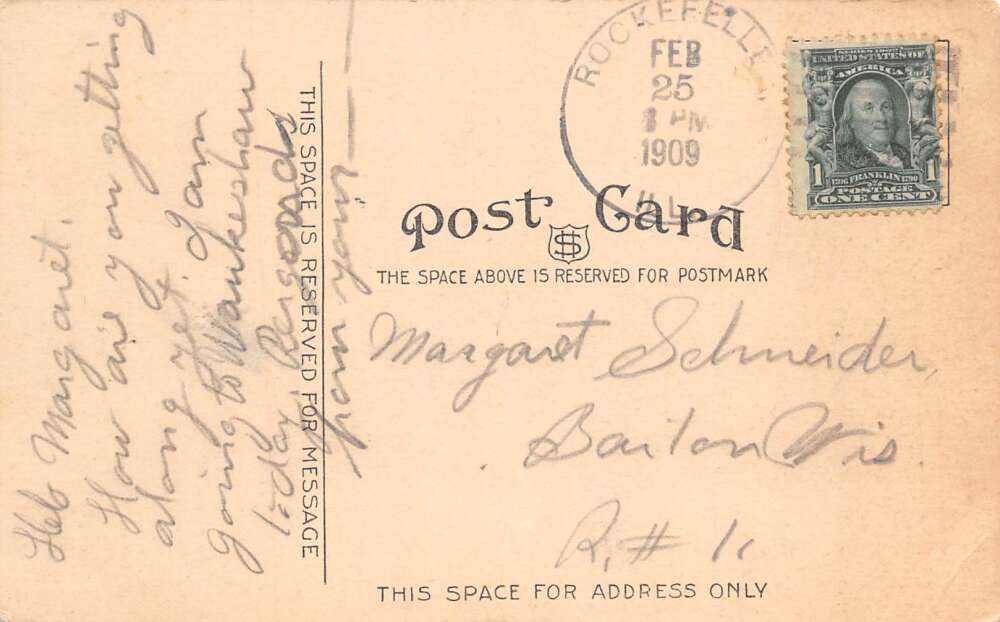 Helo Margaret.
How are you getting
along yet. I am
going to Waukeshaw
today. Regards
from yours
THIS SPACE IS RESERVED FOR MESSAGE
ROCKEFELLE
FEB
25
PM
1909
ILL
SERIES 1902
UNITED STATES OF
AMERICA
1706 FRANKLIN 1790
1 POSTAGE 1
ONE CENT
Post Card
THE SPACE ABOVE IS RESERVED FOR POSTMARK
Margaret Schneider,
Barton Wis.
R. # 1.
THIS SPACE FOR ADDRESS ONLY